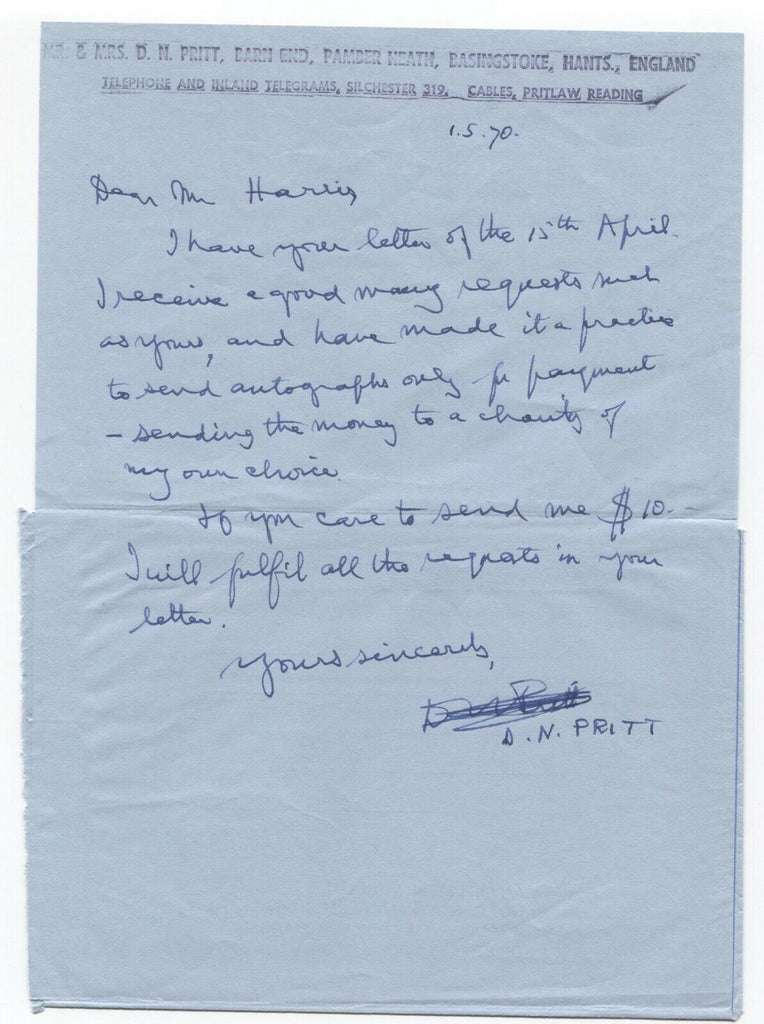 MR. & MRS. D. N. PRITT, BARN END, PAMBER HEATH, BASINGSTOKE, HANTS., ENGLAND
TELEPHONE AND INLAND TELEGRAMS, SILCHESTER 319. CABLES, PRITLAW, READING
1.5.70.
Dear Mr Harris
I have your letter of the 15th April.
I receive a good many requests such
as yours, and have made it a practice
to send autographs only for payment
- sending the money to a charity of
my own choice.
If you care to send me $10.-
I will fulfil all the requests in your
letter.
Yours sincerely,
D N Pritt
D. N. PRITT